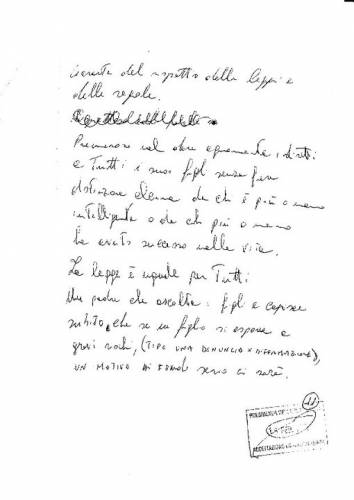 del rispetto delle leggi e
delle regole.
Premuroso nel dare equamente i diritti
a Tutti i suoi figli senza fare
distinzione alcuna da chi è più o meno
intelligente o da chi più o meno
ha avuto successo nella vita.
La legge è uguale per Tutti
Un padre che ascolta i figli e capisce
subito, che se un figlio si espone a
gravi rischi, (TIPO UNA DENUNCIA X DIFFAMAZIONE),
UN MOTIVO DI FONDO serio ci sarà.
11